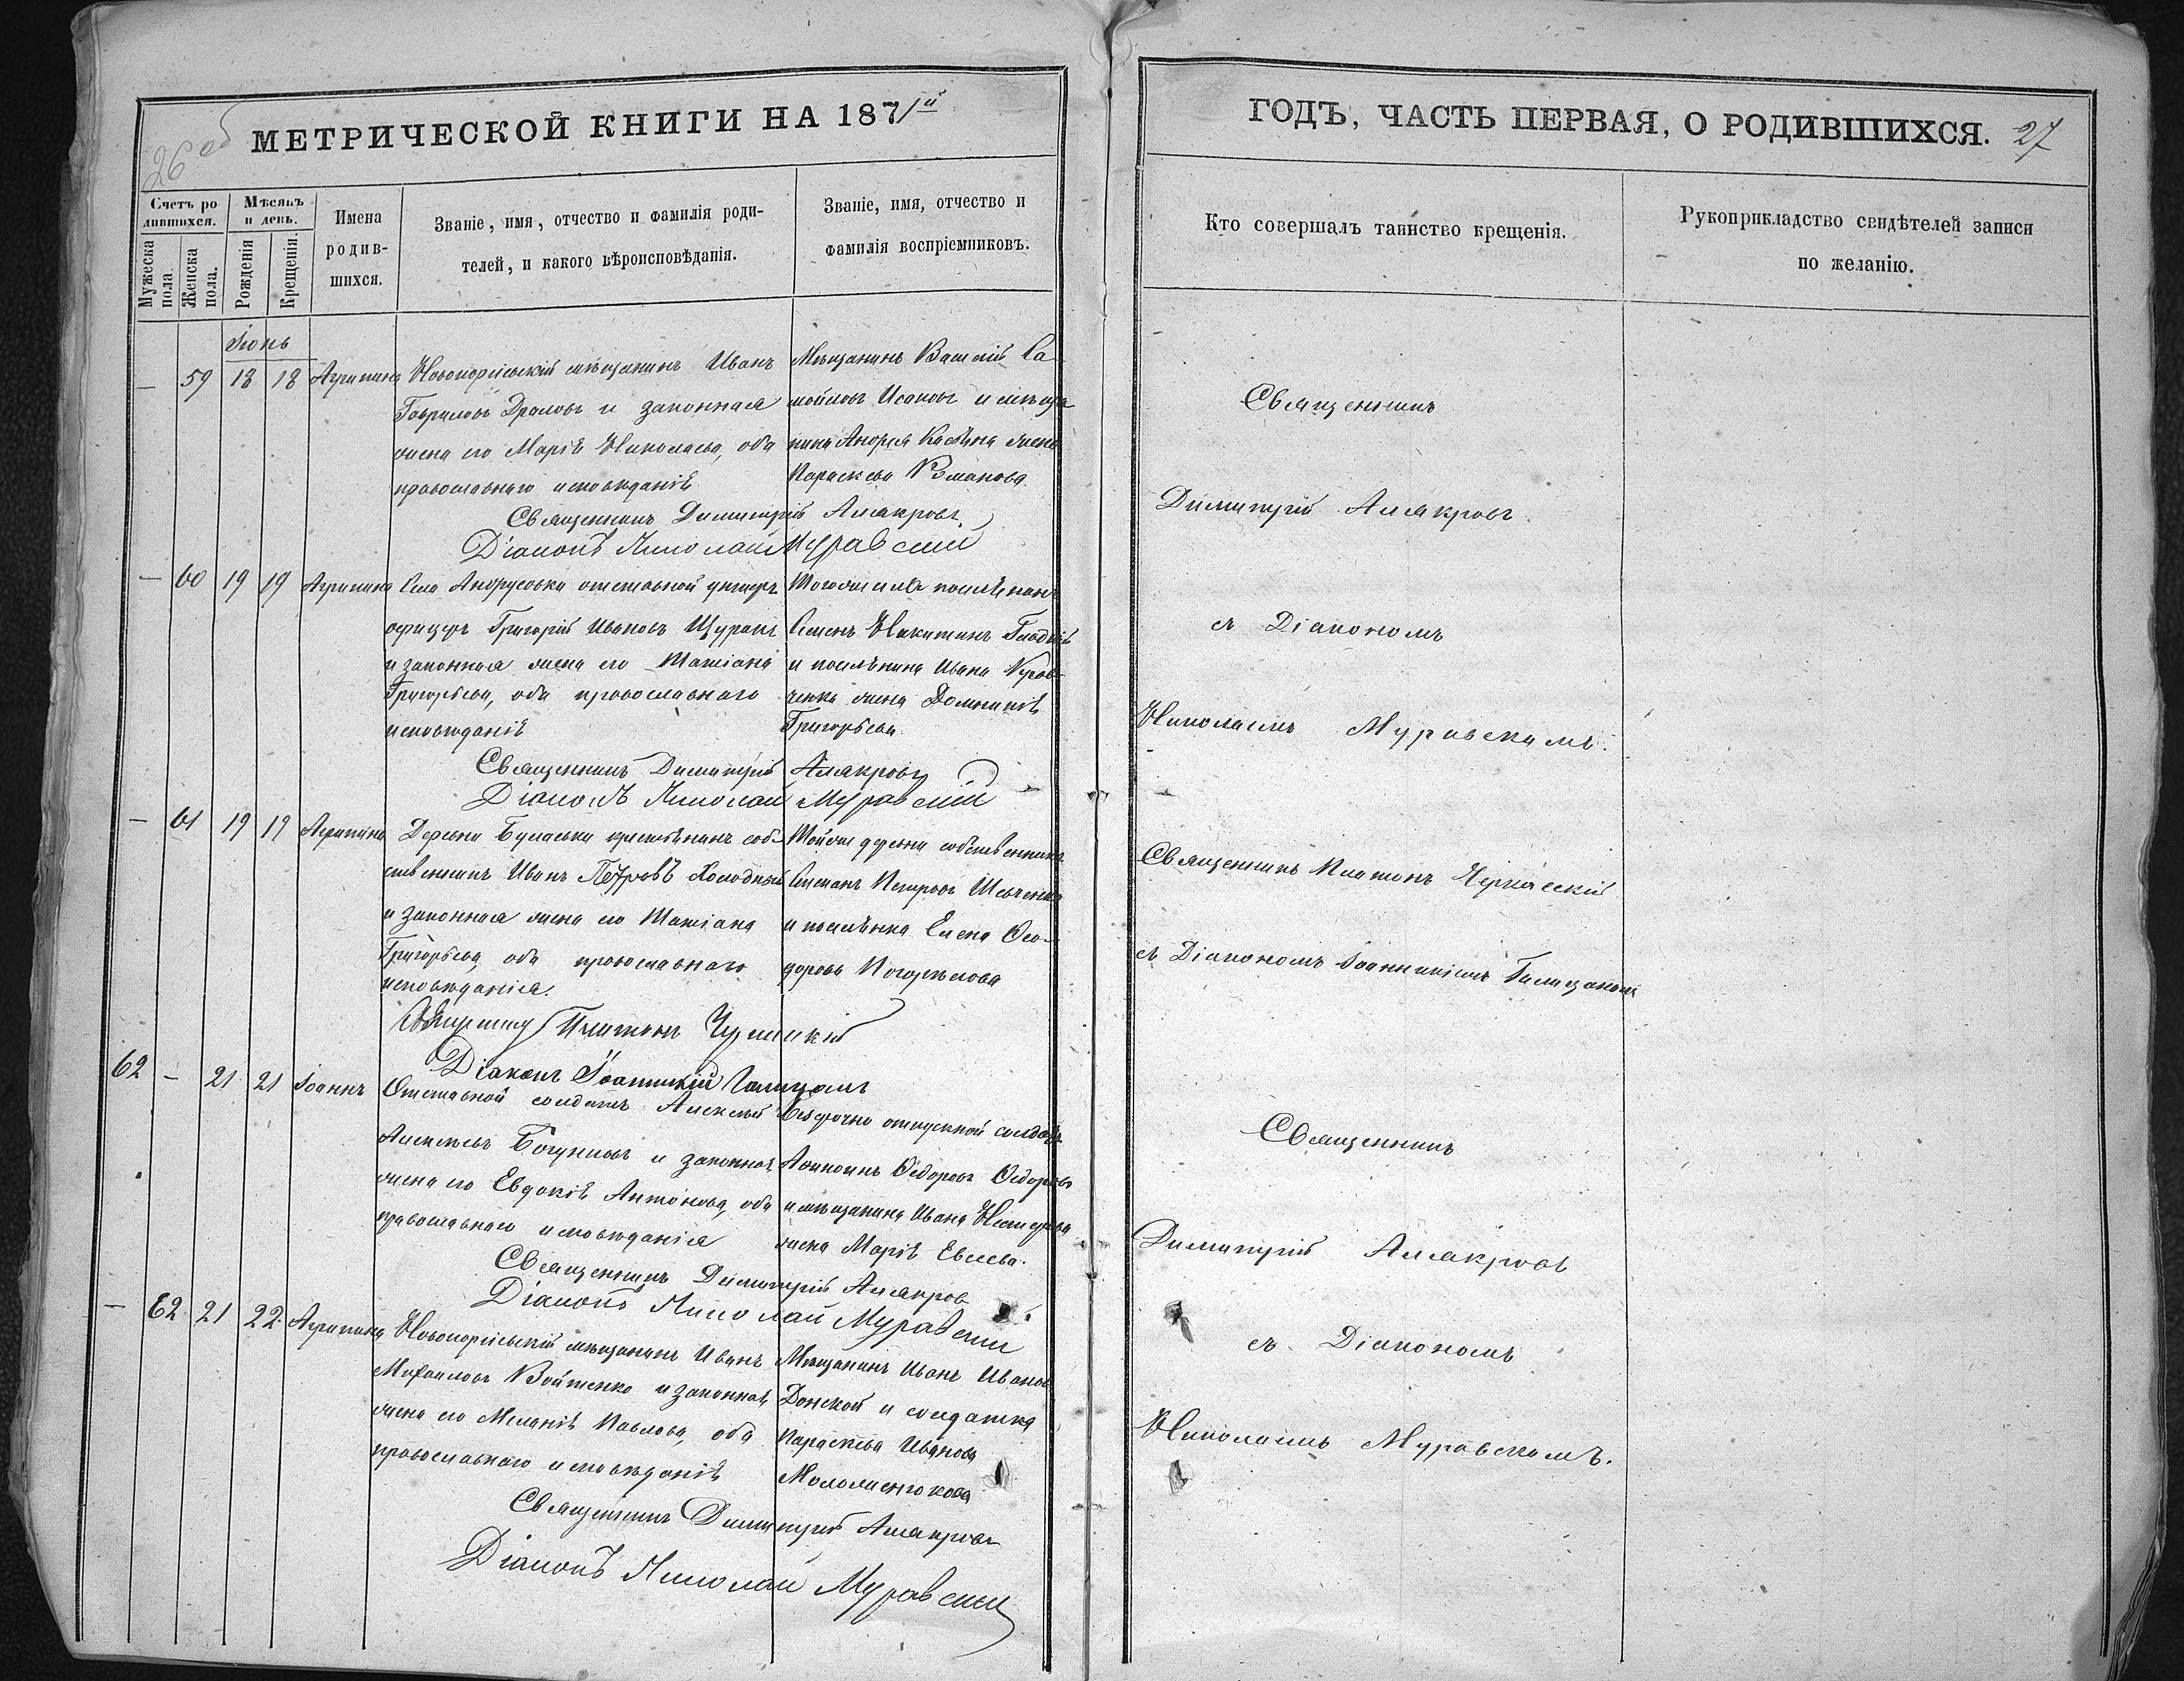 26 об
МЕТРИЧЕСКОЙ КНИГИ НА 1871й
Счетъ родившихся.
Мужеска пола.
Женска пола.
Мѣсяцъ и день.
Рожденія
Крещенія.
Имена родившихся.
Званіе, имя, отчество и фамилія родителей, и какого вѣроисповѣданія.
Званіе, имя, отчество и фамилія воспріемниковъ.
Іюнь
— 59 18 18 Агрипина
Новогеоргіевскій мѣщанинъ Иванъ
Гавриловъ и законная
жена его Марія Николаева, оба
православнаго исповѣданія
Мѣщанинъ Василій Са-
мойловъ Исаковъ и мѣща-
нина Андрея жена
Параскева Романова
Священникъ Димитрій
Діаконъ Николай Муравскій
— 60 19 19 Агрипина
Села Андрусовки отставной унтеръ
офицеръ Григорій Ивановъ Щуракъ
и законная жена его Татіана
Григорьева, оба православнаго
исповѣданія
Тогоже села поселянинъ
Семенъ Никитинъ Гладкій
и поселянина Ивана
жена Домникія
Григорьева.
Священникъ Димитрій
Діаконъ Николай Муравскій
— 61 19 19 Агрипина
Деревни крестьянинъ соб-
ственникъ Иванъ Петровъ Холодный
и законная жена его Татіана
Григорьева, оба православнаго
исповѣданія.
Тойже деревни собственникъ
Степанъ Петровъ Шевченко
и поселянка Елена Ѳео-
дорова Погорѣлова
Священникъ Платонъ Черкасскій
Діаконъ Іоанникій
62 — 21 21 Іоаннъ
Отставной солдатъ Алексѣй
Алексѣевъ и законная
жена его Евдокія Антонова, оба
православнаго исповѣданія
Безсрочно отпускной солдатъ
Ѳедоровъ Ѳедоровъ
и мѣщанина Ивана Нестерова
жена Марія Евсеева.
Священникъ Димитрій
Діаконъ Николай Муравскій
— 62 21 22 Агрипина
Новогеоргіевскій мѣщанинъ Иванъ
Михаиловъ Войтенко и законная
жена его Меланія Павлова, оба
православнаго исповѣданія
Мѣщанинъ Иванъ Ивановъ
Донской и солдатка
Параскева Иванова
Священникъ Димитрій
Діаконъ Николай Муравскій
ГОДЪ, ЧАСТЬ ПЕРВАЯ, О РОДИВШИХСЯ. 27
Кто совершалъ таинство крещенія.
Рукоприкладство свидѣтелей записи по желанію.
Священникъ
Димитрій
съ Діакономъ
Николаемъ Муравскимъ.
Священникъ Платонъ Черкасскій
съ Діакономъ Іоанникіемъ
Священникъ
Димитрій
съ Діакономъ
Николаемъ Муравскимъ.